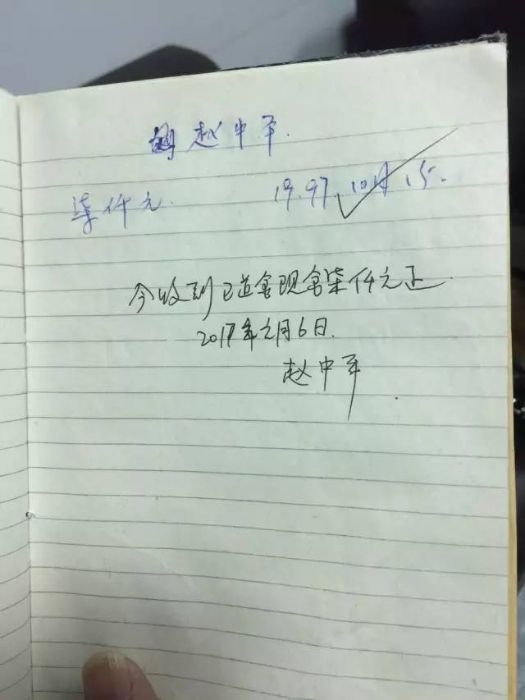 赵中平.
柒仟元. 19.97.10月15.
今收到 现金柒仟元正
2017年2月6日.
赵中平.